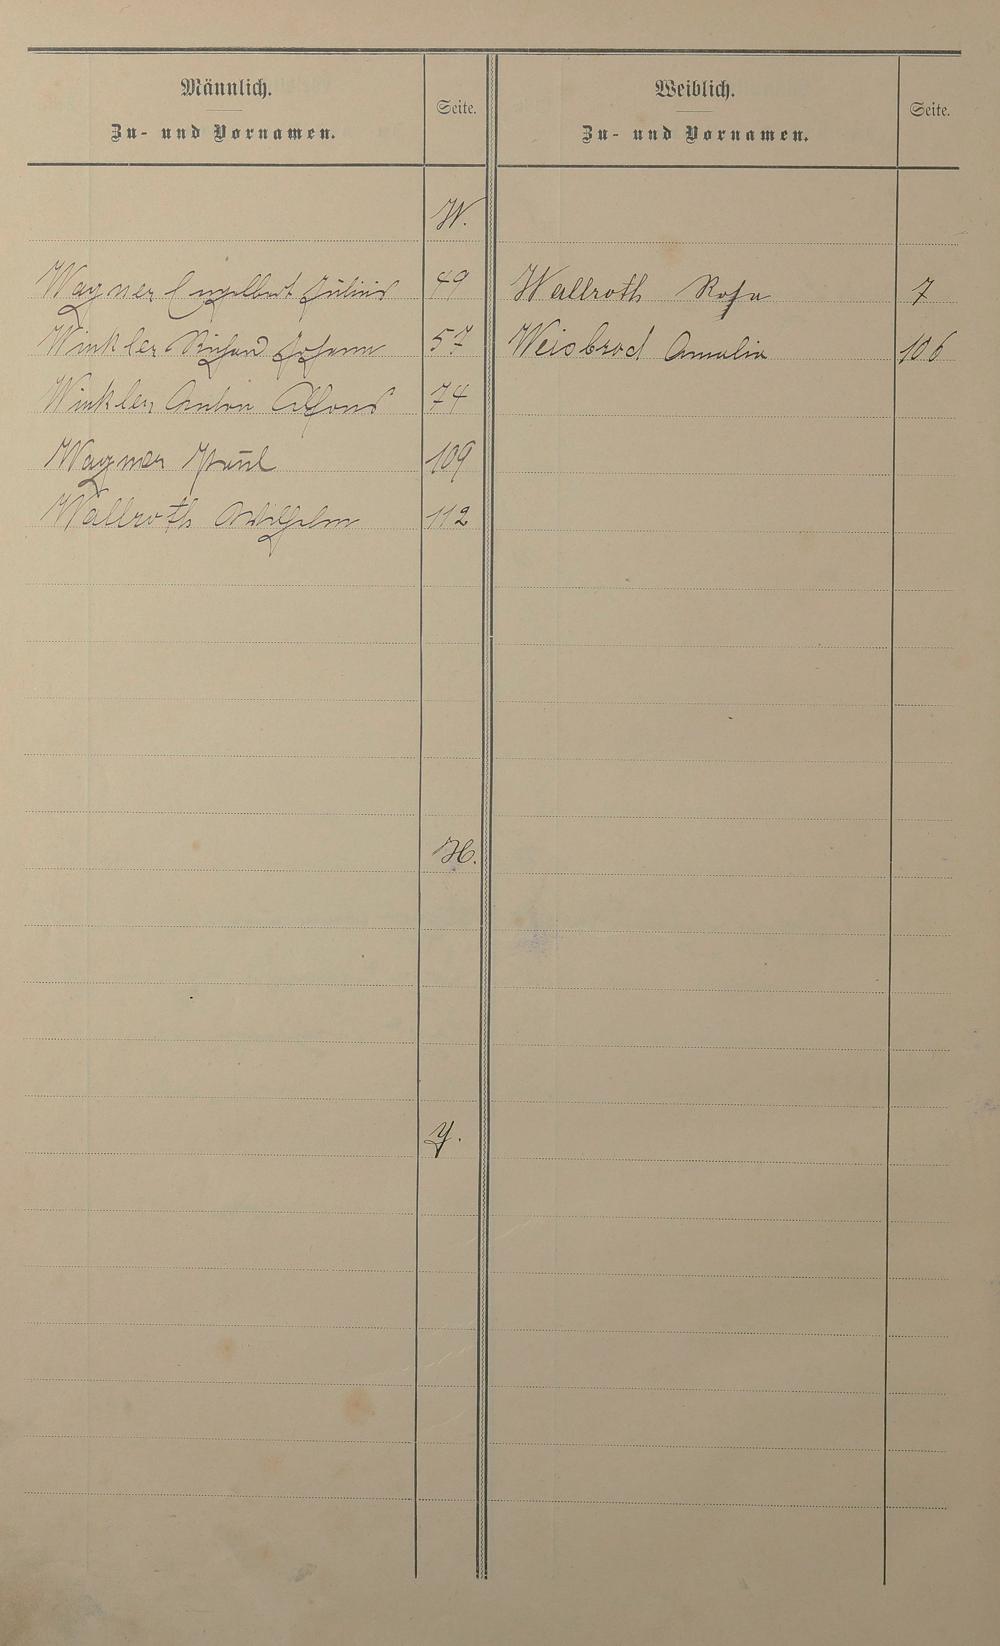 Männlich.
Zu- und Vornamen.
Seite.
Weiblich.
Zu- und Vornamen.
Seite.
W.
Wagner Engelbert Julius 49
Wallroth Rosa 7
Winkler Richard Johann 57
Weisbrod Amalia 106
Winkler Anton Alfons 74
Wagner Paul 109
Wallroth Wilhelm 112
X.
Y.